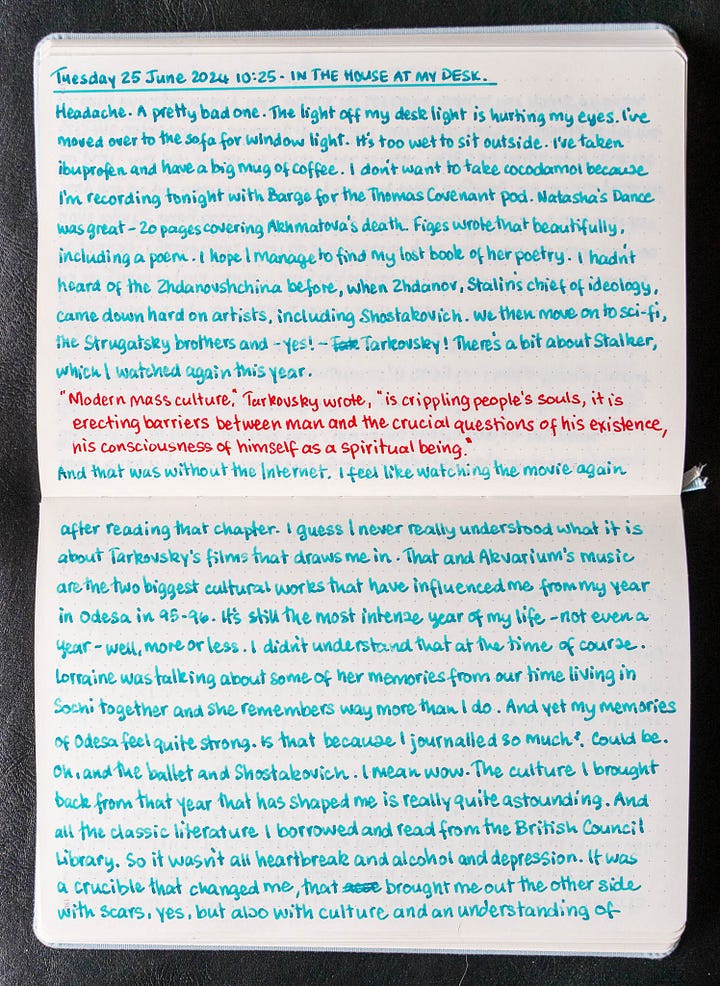 Tuesday 25 June 2024 10:25 - IN THE HOUSE AT MY DESK.
Headache. A pretty bad one. The light off my desk light is hurting my eyes. I've
moved over to the sofa for window light. It's too wet to sit outside. I've taken
ibuprofen and have a big mug of coffee. I don't want to take cocodamol because
I'm recording tonight with Barge for the Thomas Covenant pod. Natasha's Dance
was great - 20 pages covering Akhmatova's death. Figes wrote that beautifully,
including a poem. I hope I manage to find my lost book of her poetry. I hadn't
heard of the Zhdanovshchina before, when Zhdanov, Stalin's chief of ideology,
came down hard on artists, including Shostakovich. We then move on to sci-fi,
the Strugatsky brothers and - yes! - Tarkovsky! There's a bit about Stalker,
which I watched again this year.
"Modern mass culture," Tarkovsky wrote, "is crippling people's souls, it is
erecting barriers between man and the crucial questions of his existence,
his consciousness of himself as a spiritual being."
And that was without the Internet. I feel like watching the movie again
after reading that chapter. I guess I never really understood what it is
about Tarkovsky's films that draws me in. That and Akvarium's music
are the two biggest cultural works that have influenced me from my year
in Odesa in 95-96. It's still the most intense year of my life - not even a
year - well, more or less. I didn't understand that at the time of course.
Lorraine was talking about some of her memories from our time living in
Sochi together and she remembers way more than I do. And yet my memories
of Odesa feel quite strong. Is that because I journalled so much? Could be.
Oh, and the ballet and Shostakovich. I mean wow. The culture I brought
back from that year that has shaped me is really quite astounding. And
all the classic literature I borrowed and read from the British Council
Library. So it wasn't all heartbreak and alcohol and depression. It was
a crucible that changed me, that brought me out the other side
with scars, yes, but also with culture and an understanding of